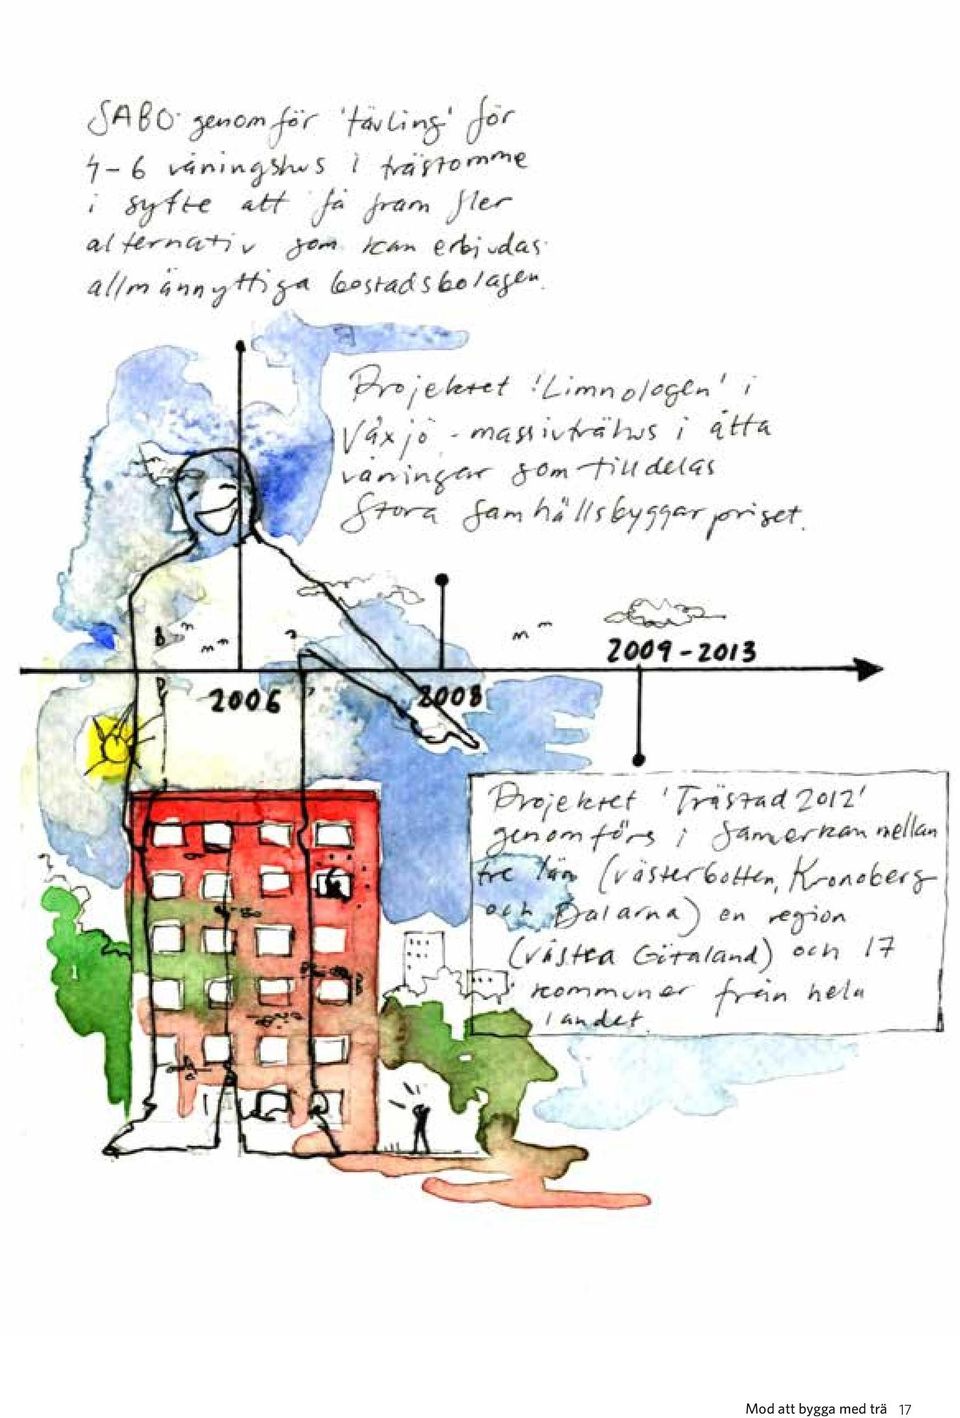 SABO genomför 'tävling' för
4-6 våningshus i trästomme
i syfte att få fram fler
alternativ som kan erbjudas
allmännyttiga bostadsbolagen.
Projektet 'Limnologen' i
Växjö - massivträhus i åtta
våningar som tilldelas
Stora Samhällsbyggarpriset.
2009-2013
2006
2008
Projektet 'Trästad 2012'
genomförs i samverkan mellan
tre län (västerbotten, Kronoberg
och Dalarna) en region
(västra Götaland) och 17
kommuner från hela
landet.
Mod att bygga med trä 17